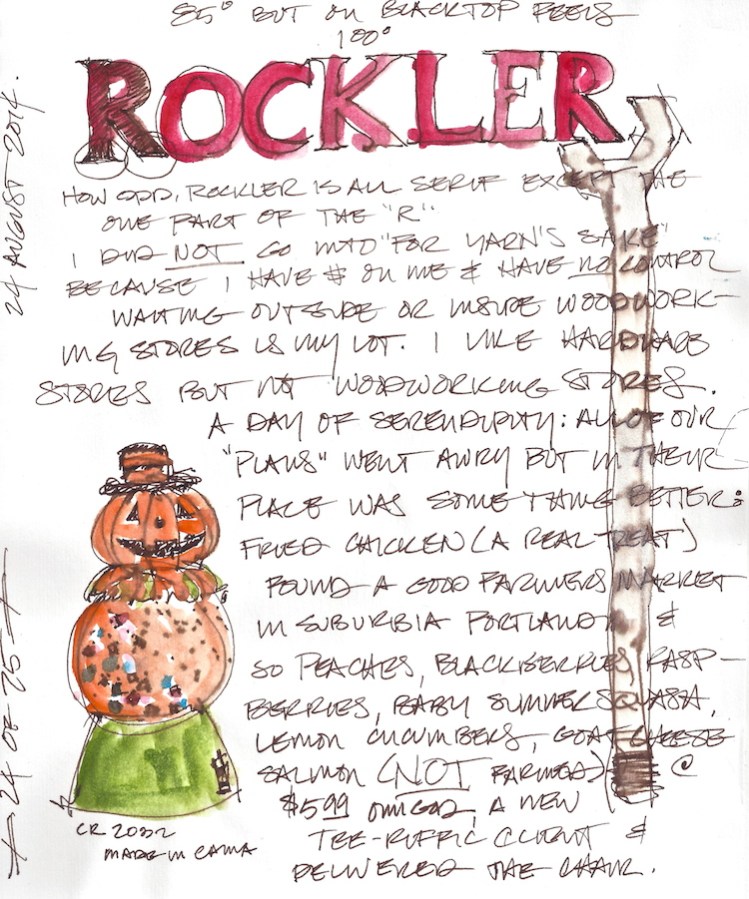 85° BUT ON BLACKTOP FEELS
100°
ROCKLER
24 AUGUST 2014.
HOW ODD, ROCKLER IS ALL SERIF EXCEPT THE
ONE PART OF THE "R".
I DID NOT GO INTO "FOR YARN'S SAKE"
BECAUSE I HAVE $ ON ME & HAVE NO CONTROL
WAITING OUTSIDE OR INSIDE WOODWORK-
ING STORES IS MY LOT. I LIKE HARDWARE
STORES BUT NOT WOODWORKING STORES.
A DAY OF SERENDIPITY: ALL OF OUR
"PLANS" WENT AWRY BUT IN THEIR
PLACE WAS SOME THING BETTER:
FRIED CHICKEN (A REAL TREAT)
FOUND A GOOD FARMERS MARKET
IN SUBURBIA PORTLAND &
SO PEACHES, BLACKBERRIES, RASP-
BERRIES, BABY SUMMER SQUASH,
LEMON CUCUMBERS, GOAT CHEESE
SALMON (NOT FARMED) @
$5.99 OMIGOD, A NEW
TEE-RUFFIC CLIENT &
DELIVERED THE CHAIR.
24 OF 75
CR 2032
MADE IN CHINA